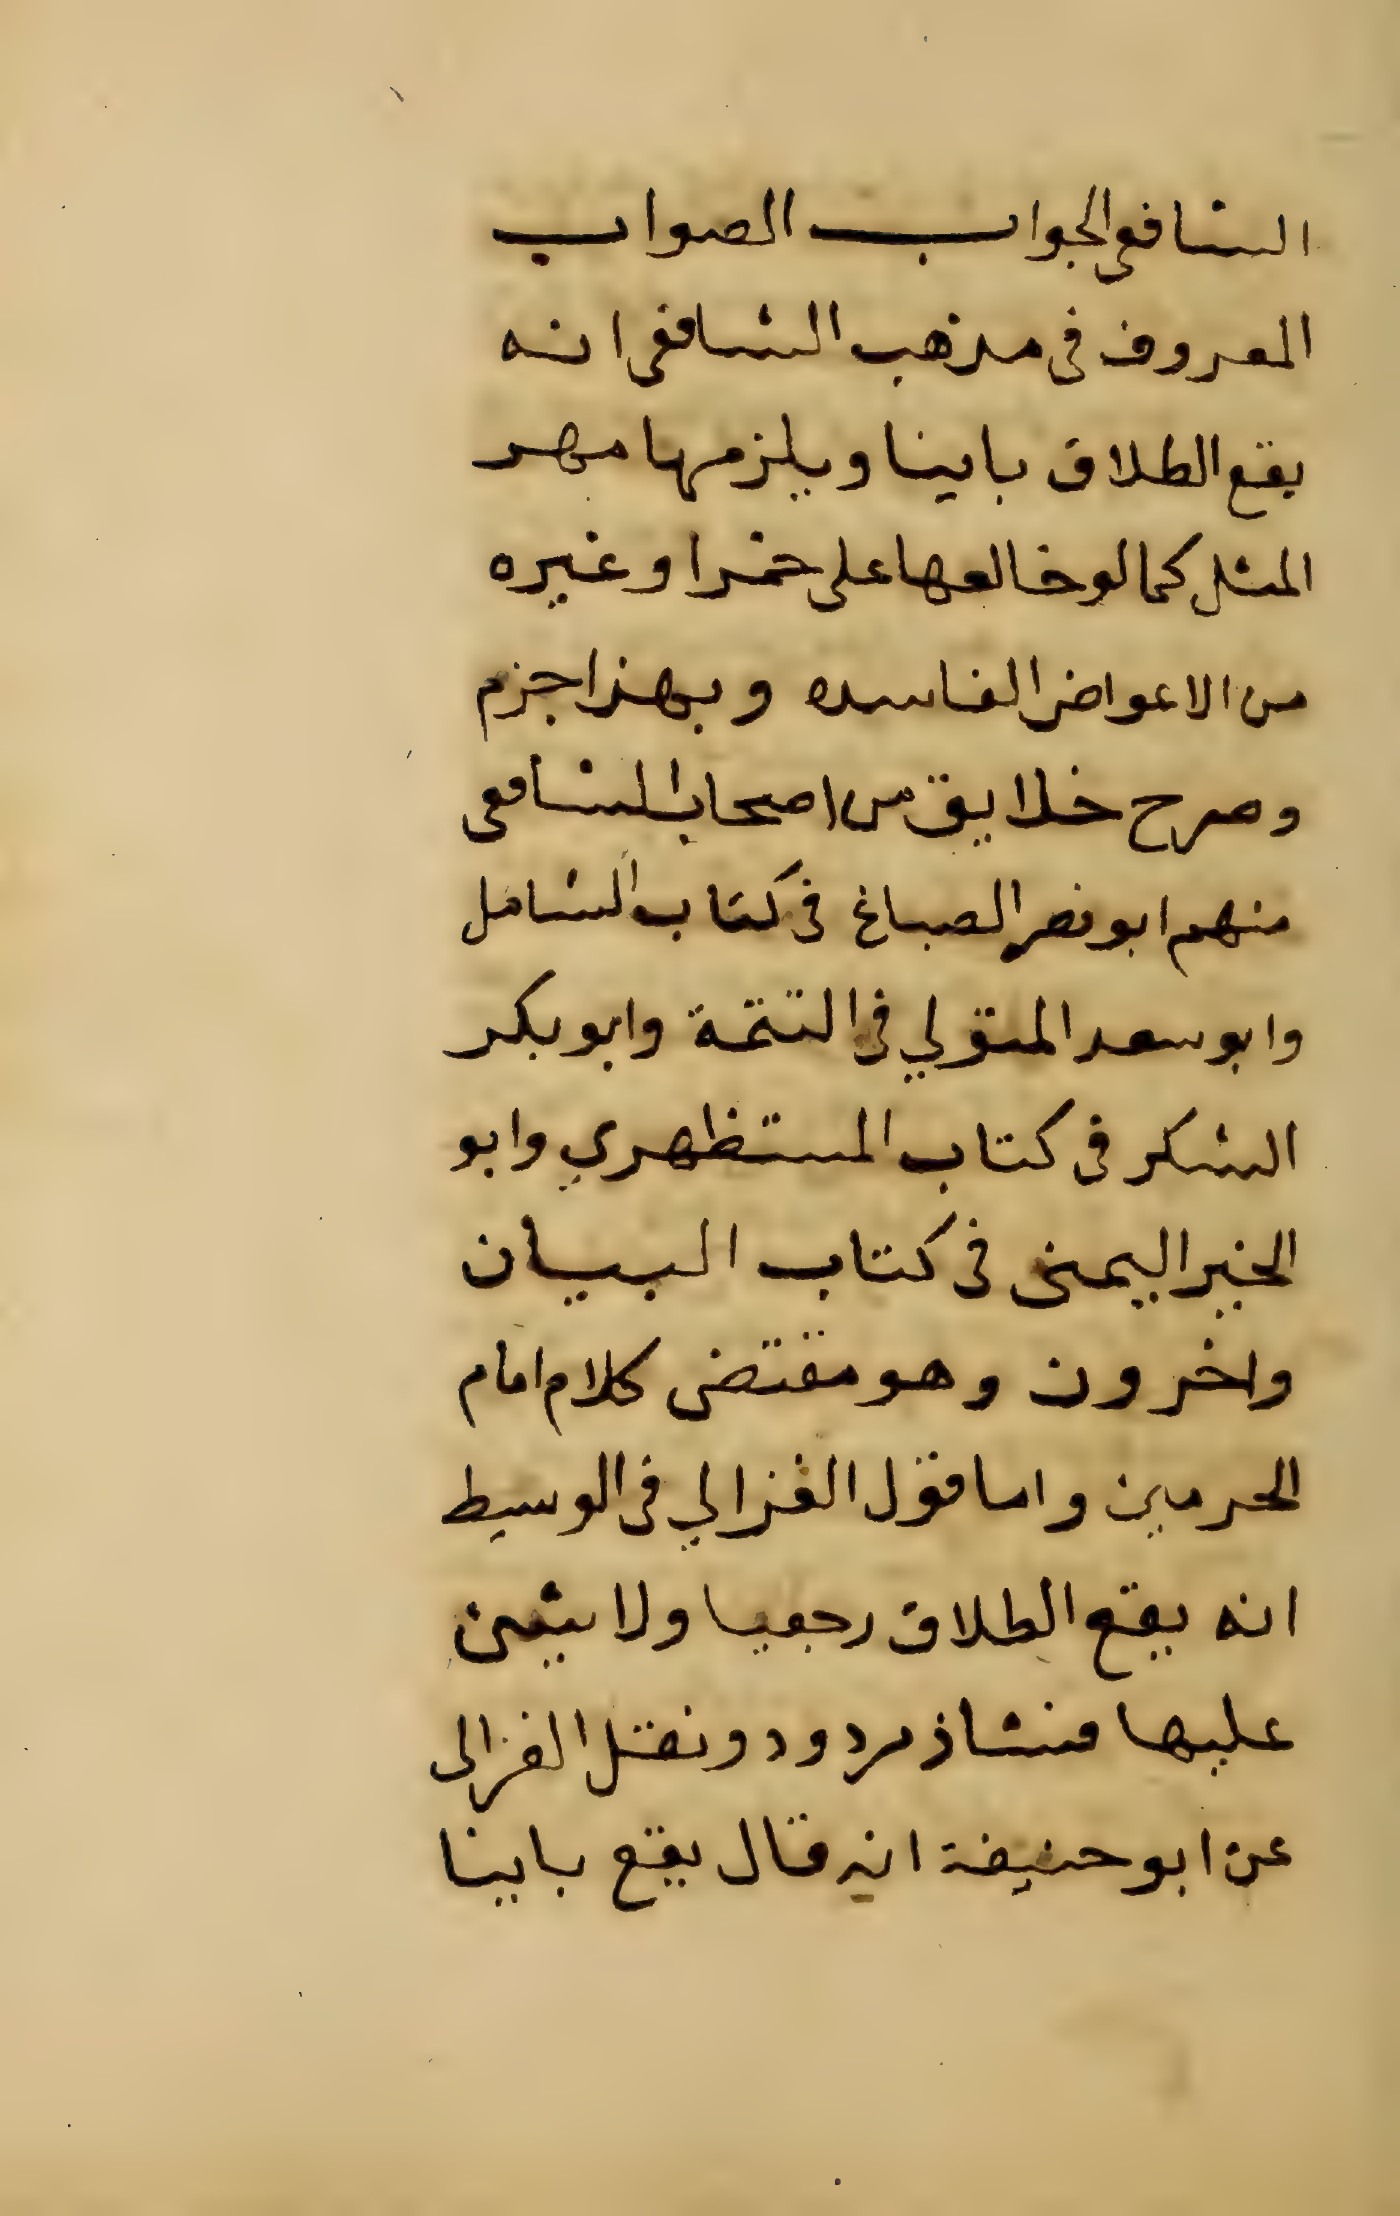 الشافعي الجواب الصواب
المعروف في مذهب الشافعي انه
يقع الطلاق باينا ويلزمها مهر
المثل كما لو خالعها على خمر او غيره
من الاعواض الفاسده وبهذا جزم
وصرح خلايق من اصحاب الشافعي
منهم ابو نصر الصباغ في كتاب الشامل
وابو سعد المتولي في التتمة وابو بكر
الشكر في كتاب المستظهري وابو
الخير اليمني في كتاب البيان
واخرون وهو مقتضى كلام امام
الحرمين واما قول الغزالي في الوسيط
انه يقع الطلاق رجعيا ولا
عليها فشاذ مردود ونقل الغزالى
عن ابو حنيفة انه قال يقع باينا